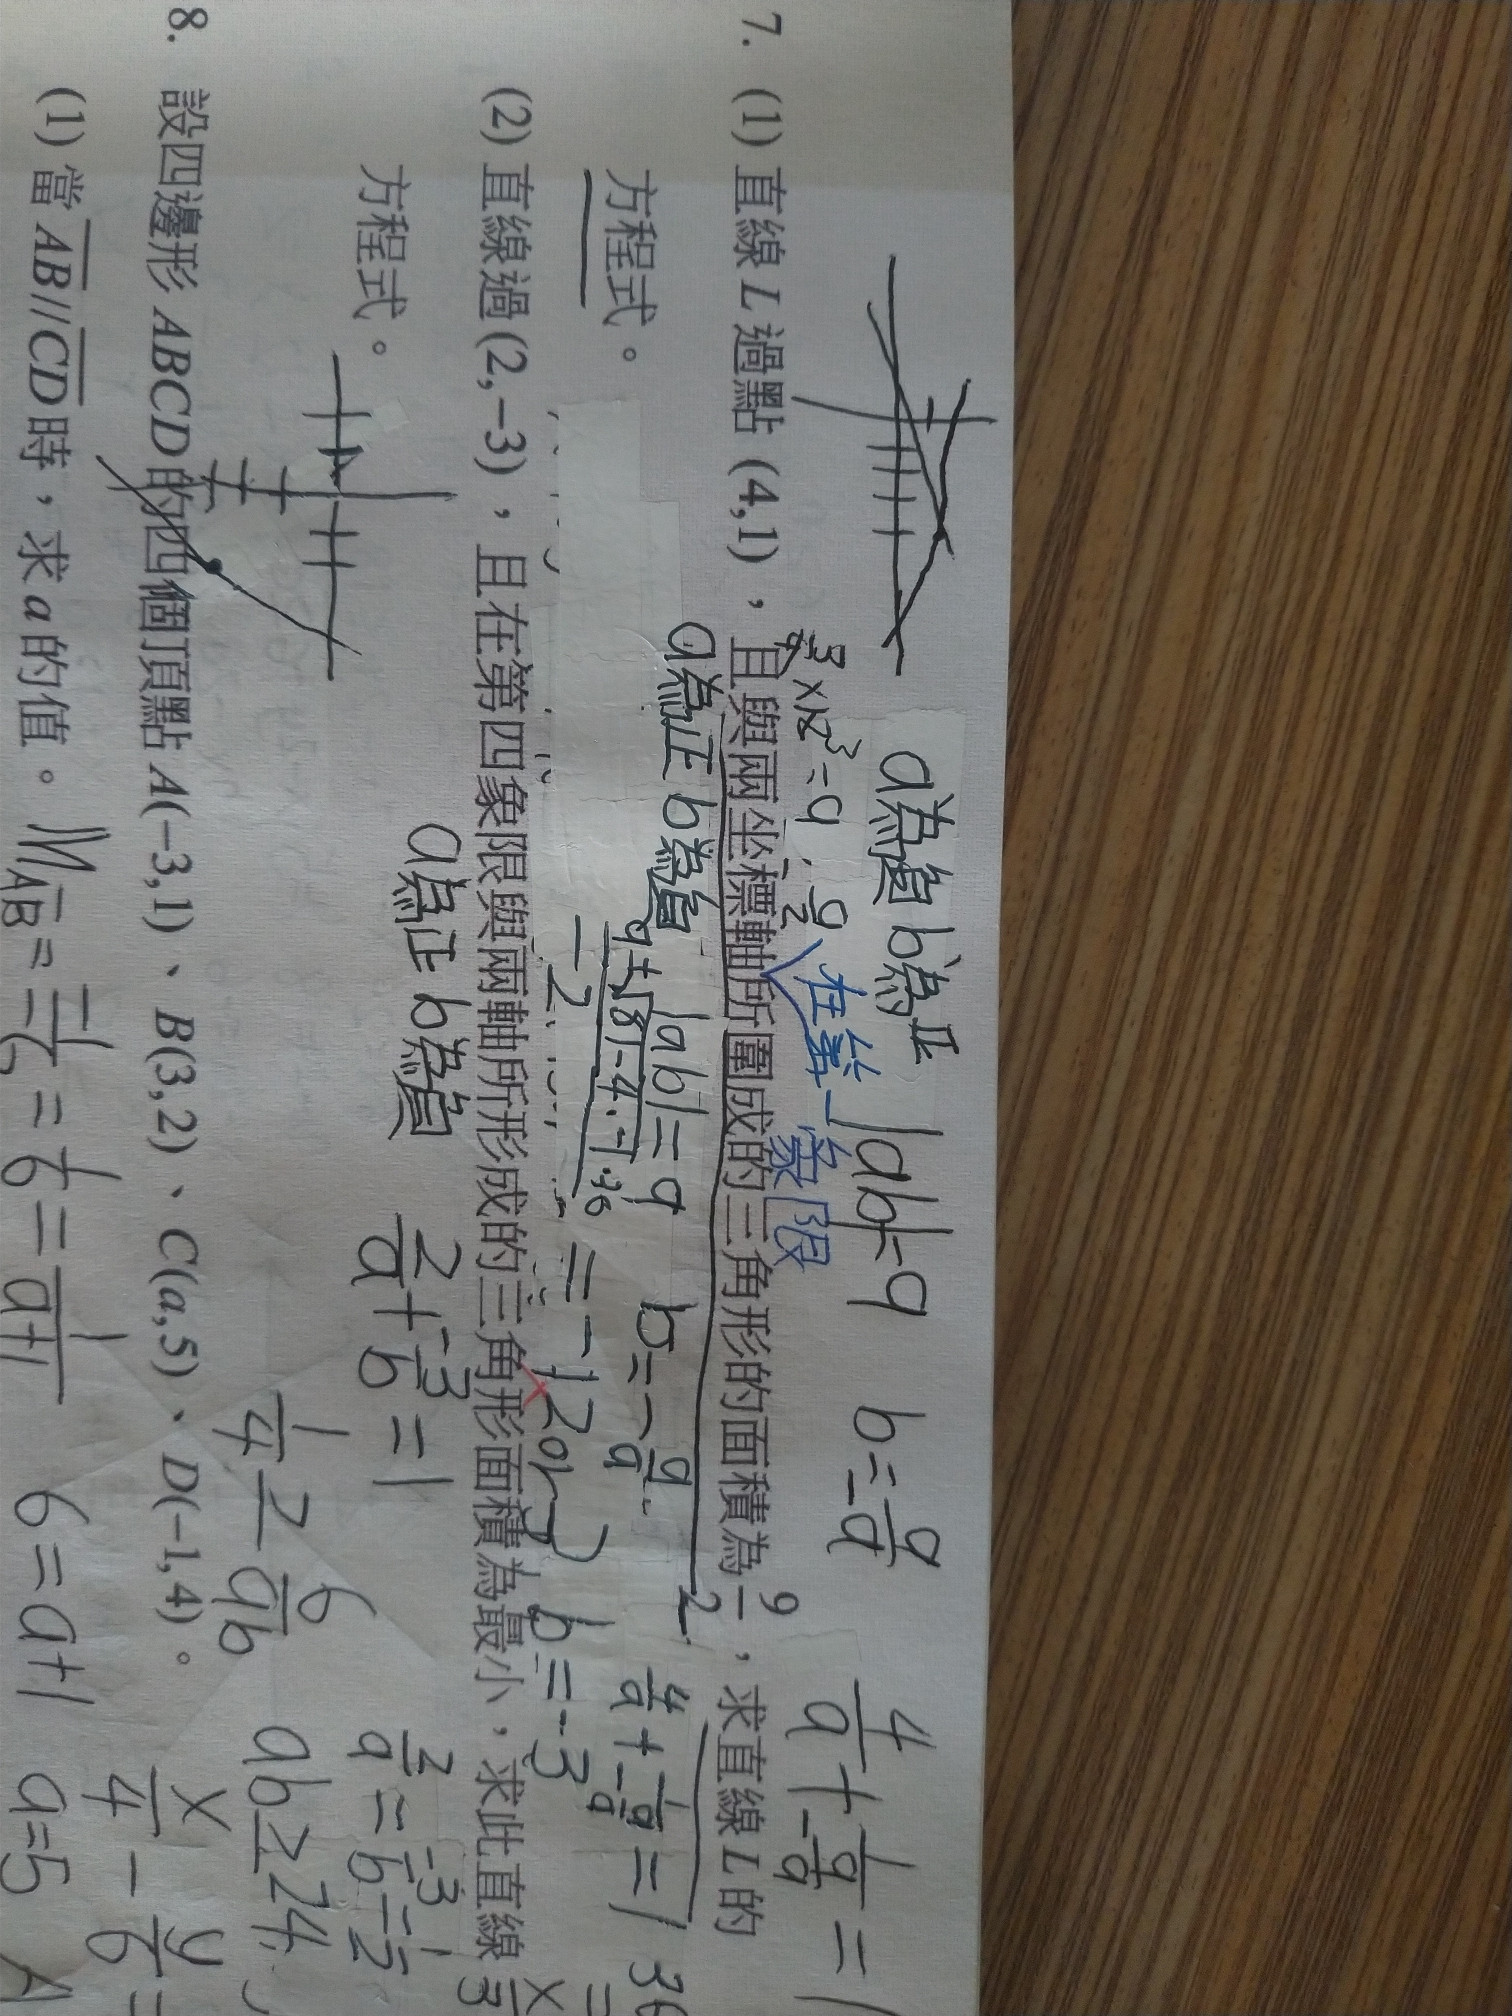 a為負 b為正 |ab|=9 b=-9/a 4/a+1/(-9/a)=1
×12³=9 9/2 在第一象限
7. (1) 直線 L 過點 (4,1)，且與兩坐標軸所圍成的三角形的面積為 9/2，求直線 L 的
a為正 b為負 |ab|=9 b=-9/a 4/a+1/(-9/a)=1 36
方程式。
9±√81-4·-1·36/-2 = -12or3 b=-3
(2) 直線過(2,-3)，且在第四象限與兩軸所形成的三角形面積為最小，求此直線
方程式。
a為正 b為負 2/a+-3/b=1 2/a=-3/b=1/2
1/4≥-6/ab ab≥24
8. 設四邊形 ABCD 的四個頂點 A(-3,1)、B(3,2)、C(a,5)、D(-1,4)。
x/4-y/6=
(1) 當 AB//CD 時，求 a 的值。 M AB=-1/-6=1/6=1/a+1 6=a+1 a=5